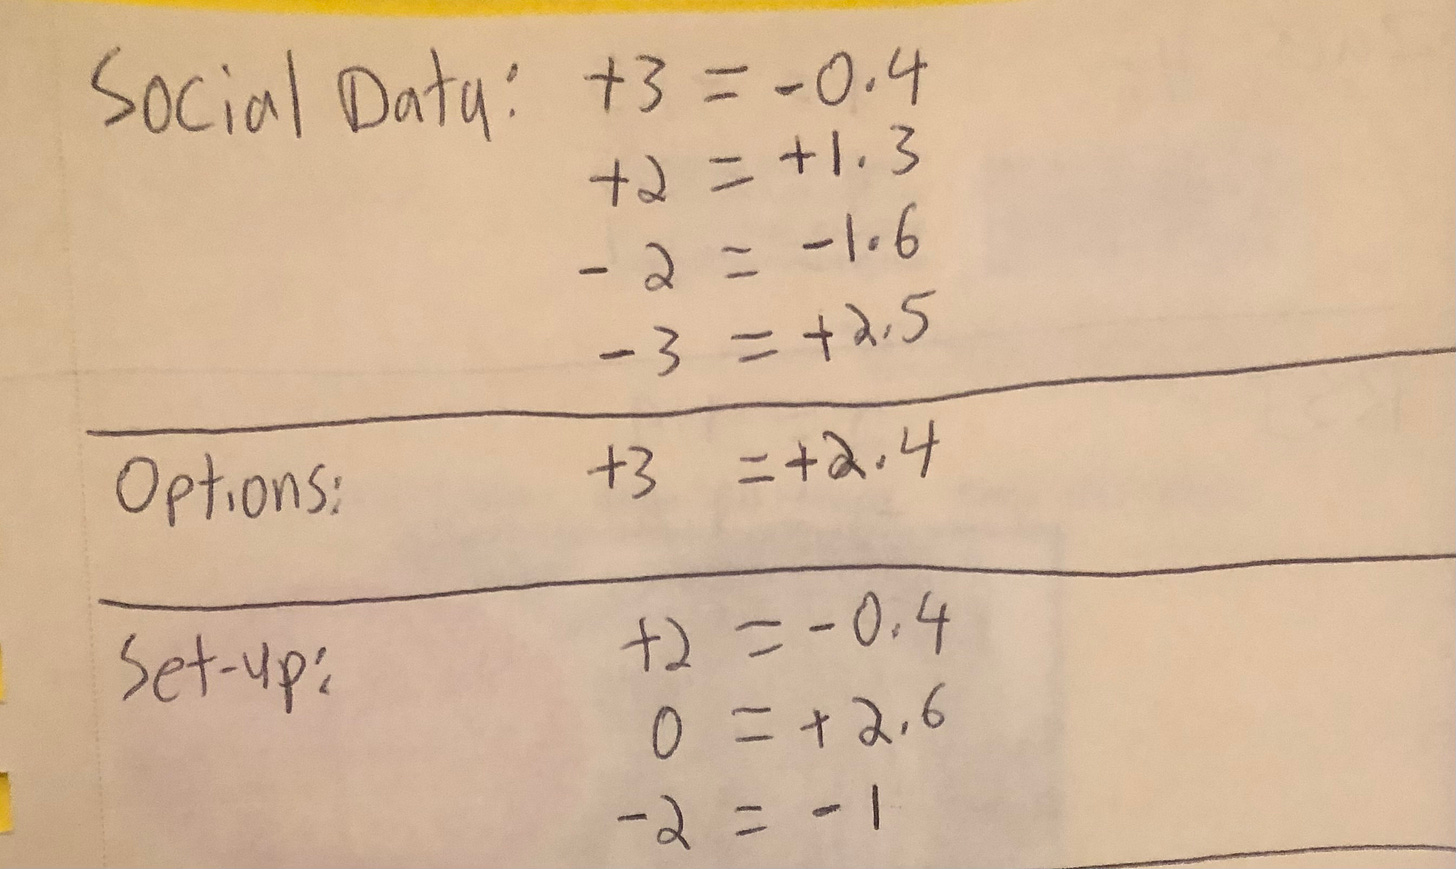 Social Data: +3 = -0.4
+2 = +1.3
- 2 = -1.6
- 3 = +2.5
Options: +3 = +2.4
Set-up: +2 = -0.4
0 = +2.6
-2 = -1